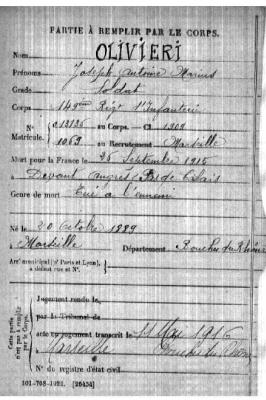 PARTIE À REMPLIR PAR LE CORPS.
Nom OLIVIERI
Prénoms Joseph Antoine Marius
Grade Soldat
Corps 149ème Régt d'Infanterie
N° 013136 au Corps. — Cl. 1909
Matricule. 1063 au Recrutement Marseille
Mort pour la France le 26 Septembre 1915
à Devant Angres (Pas de Calais
Genre de mort Tué à l'ennemi
Né le 20 Octobre 1889
à Marseille Département Bouches du Rhône
Arr' municipal (p' Paris et Lyon),
à défaut rue et N°.
Cette partie n'est pas à remplir par le Corps.
Jugement rendu le
par le Tribunal de
acte ou jugement transcrit le 11 Mai 1916
à Marseille Bouches du Rhône
N° du registre d'état civil
101-708-1921. [26434]